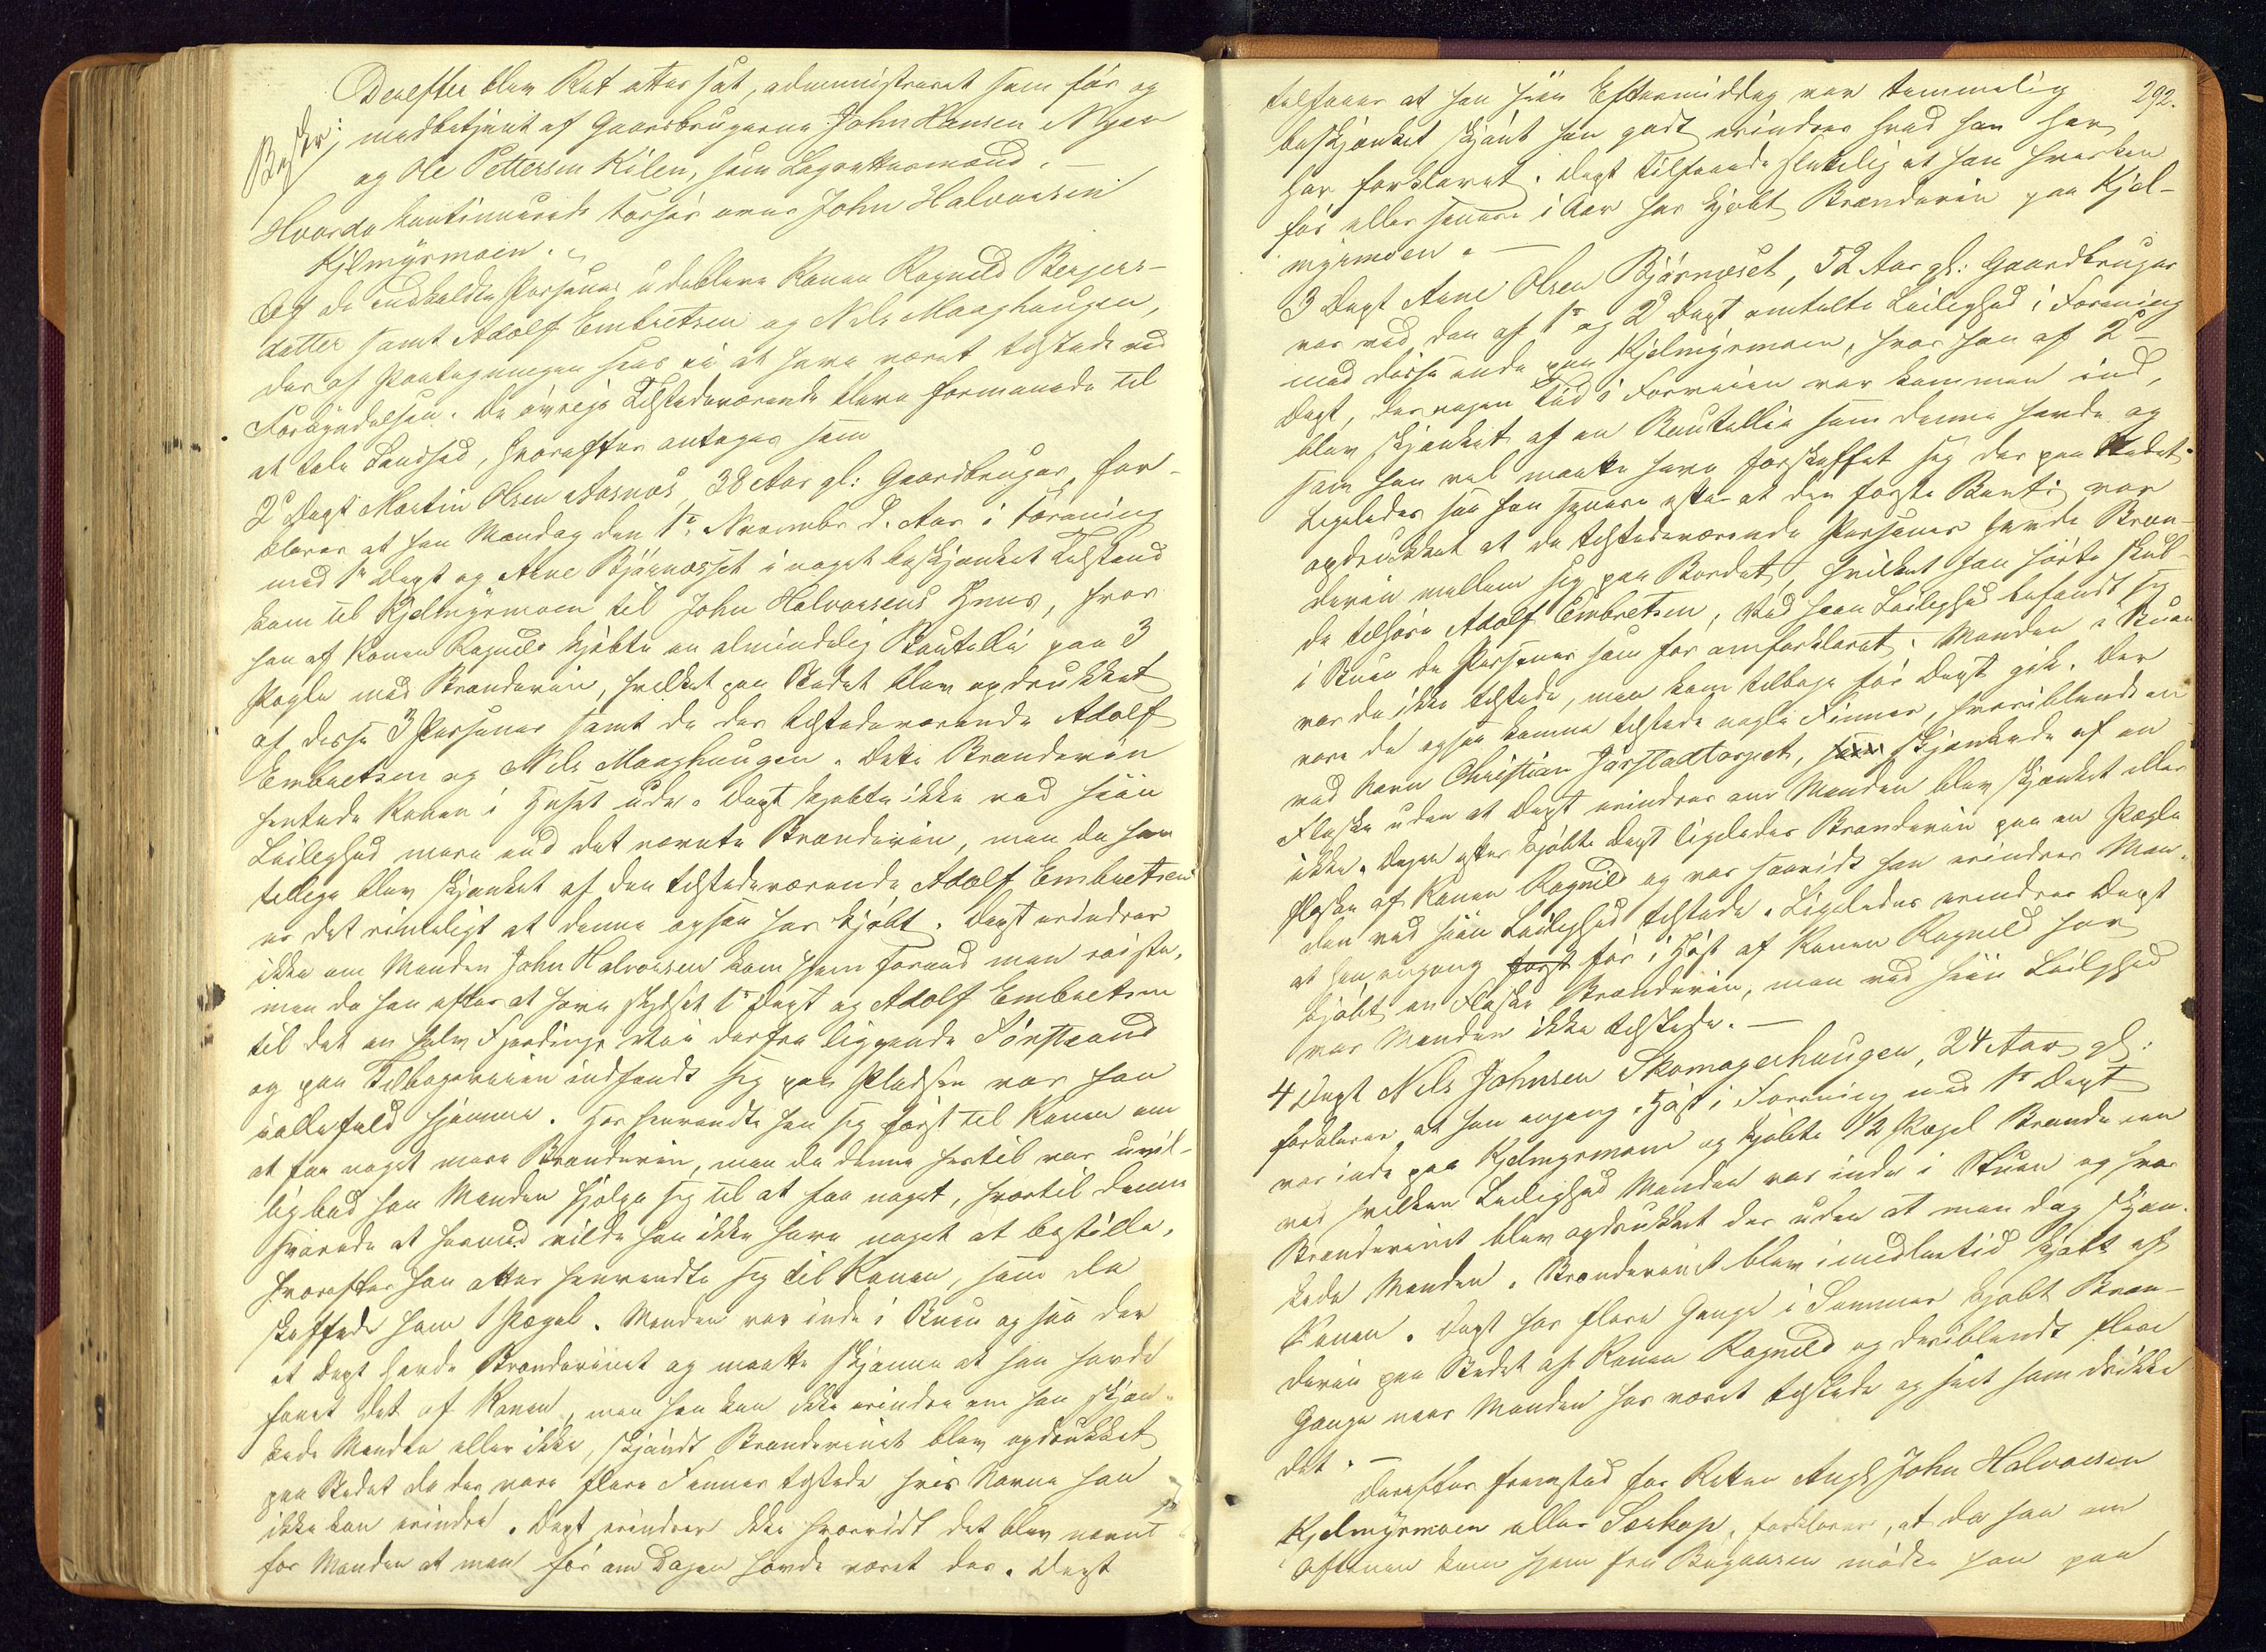 Derefter blev Ret atter sat, administreret som før og
Beskr: medbetjent af Gaardbrugerne John Hansen Myen
og Ole Pettersen Kilen, som Lagrettesmænd. —
Hvorda kontinueredes Forhør over John Halvorsen
Kjelmyrmoen.
Af de indkaldte Personer udebleve Konen Ragnild Bergers-
datter samt Adolf Embretsen og Nils Maaghaugen,
der af Paategningen sees ei at have været tilstede ved
Forkyndelsen. De øvrige Tilstedeværende bleve formanede til
at tale Sandhed, hvorefter antoges som
2 Dept Martin Olsen Aasnæs 38 Aar gl: Gaardbruger, for-
klarer at han Mandag den 1ste November d. Aar i Forening
med 1ste Dept og Arne Bjørnæsset i noget beskjænket Tilstand
kom til Kjelmyrmoen til John Halvorsens Huus, hvor
han af Konen Ragnild kjøbte en almindelig Bouteille paa 3
Pægle med Brændeviin, hvilket paa Stedet blev opdrukket
af disse 3 Personer samt de der tilstedeværende Adolf
Embretsen og Nils Maaghaugen. Dette Brændeviin
hentede Konen i Huset ude. Dept kjøbte ikke ved hiin
Leilighed mere end det nævnte Brændeviin, men da han
tillige blev skjænket af den tilstedeværende Adolf Embretsen
er det rimeligt at denne ogsaa har kjøbt. Dept erindrer
ikke om Manden John Halvorsen kom hjem forend man reiste,
men da han efter at have skydset 1ste Dept og Adolf Embretsen
til det en halv Fjerdings Vei derfra liggende Sørstrand
og paa Tilbageveien indfandt sig paa Pladsen var han
ialfald hjemme. Her henvendte han sig først til Konen om
at faa noget mere Brændeviin, men da denne hertil var uvil-
lig bad han Manden hjælpe sig til at faa noget, hvortil denne
svarede at hermed vilde han ikke have noget at bestille,
hvorefter han atter henvendte sig til Konen, som da
skaffede ham 1 Pægel. Manden var inde i Stuen og saa der
at Dept havde Brændevinet og maatte skjønne at han havde
faaet det af Konen, men han kan ikke erindre om han skjæn-
kede Manden eller ikke, skjøndt Brændevinet blev opdrukket
paa Stedet da der vare flere Finner tilstede hvis Navne han
ikke kan erindre. Dept erindrer ikke hvorvidt det blev nævnt
for Manden at man før om Dagen havde været der. Dept
292.
tilføier at han hiin Eftermiddag var temmelig
beskjænket skjønt han godt erindrer hvad han her
har forklaret. Dept tilføiede sluttelig at han hverken
før eller senere i Aar har kjøbt Brændeviin paa Kjel-
myrmoen. —
3 Dept Arne Olsen Bjørnæset, 52 Aar gl: Gaardbruger
var ved den af 1ste og 2 Dept omtalte Leilighed i Forening
med disse inde paa Kjelmyrmoen, hvor han af 2den
Dept, der nogen Tid i Forveien var kommen ind,
blev skjænket af en Bouteille som denne havde og
som han vel maatte have forskaffet sig der paa Stedet.
Ligeledes saa han senere efter at den første Bout: var
opdrukket at de tilstedeværende Personer havde Bræn-
deviin mellem sig paa Bordet, hvilket han hørte skul-
de tilhøre Adolf Embretsen. Ved hiin Leilighed befandt sig
i Stuen de Personer som før omforklaret. Manden i Stuen
var da ikke tilstede, men kom tilbage før Dept gik. Der
vare da ogsaa komne tilstede nogle Finner, hvoriblandt en
ved Navn Christian Jarstadtorpet, skjænkede af en
Flaske uden at Dept erindrer om Manden blev skjænket eller
ikke. Dagen efter kjøbte Dept ligeledes Brændeviin paa en Pægle
flaske af Konen Ragnild og var saavidt han erindrer Man-
den ved hiin Leilighed tilstede. Ligeledes erindrer Dept
at han engang først før i Høst af Konen Ragnild har
kjøbt en Flaske Brændeviin, men ved hiin Leilighed
var Manden ikke tilstede. —
4 Dept Nils Johnsen Skomagerhaugen, 24 Aar gl:
forklarer at han engang i Høst i Forening med 1ste Dept
var inde paa Kjelmyrmoen og kjøbte 1/2 Pægel Brændeviin
ved hvilken Leilighed Manden var inde i Stuen og hvor
Brændevinet blev opdrukket der uden at man dog skjæn-
kede Manden. Brændevinet blev imidlertid kjøbt af
Konen. Dept har flere Gange i Sommer kjøbt Bræn-
deviin paa Stedet af Konen Ragnild og deriblandt flere
Gange naar Manden har været tilstede og seet ham drikke
det. —
Derefter fremstod for Retten Angk John Halvorsen
Kjelmyrmoen eller Sørkop, forklarer, at da han om
Aftenen kom hjem fra Bugaasen mødte han paa